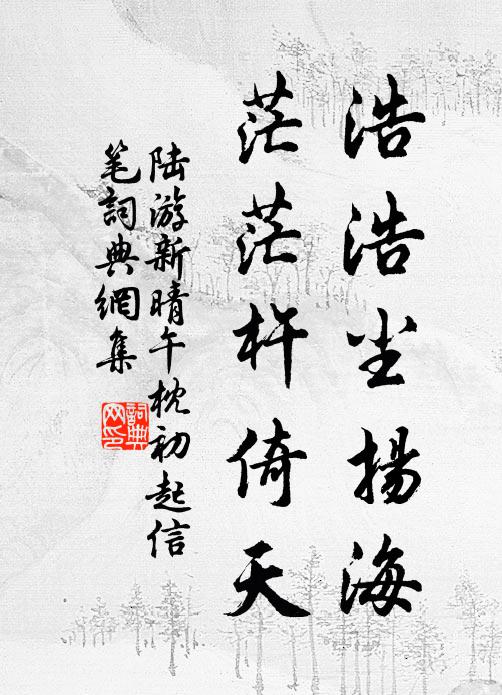 浩浩尘揚海
茫茫杵倚天
陆游新晴午枕初起信
笔詞典網集
詞典
网印